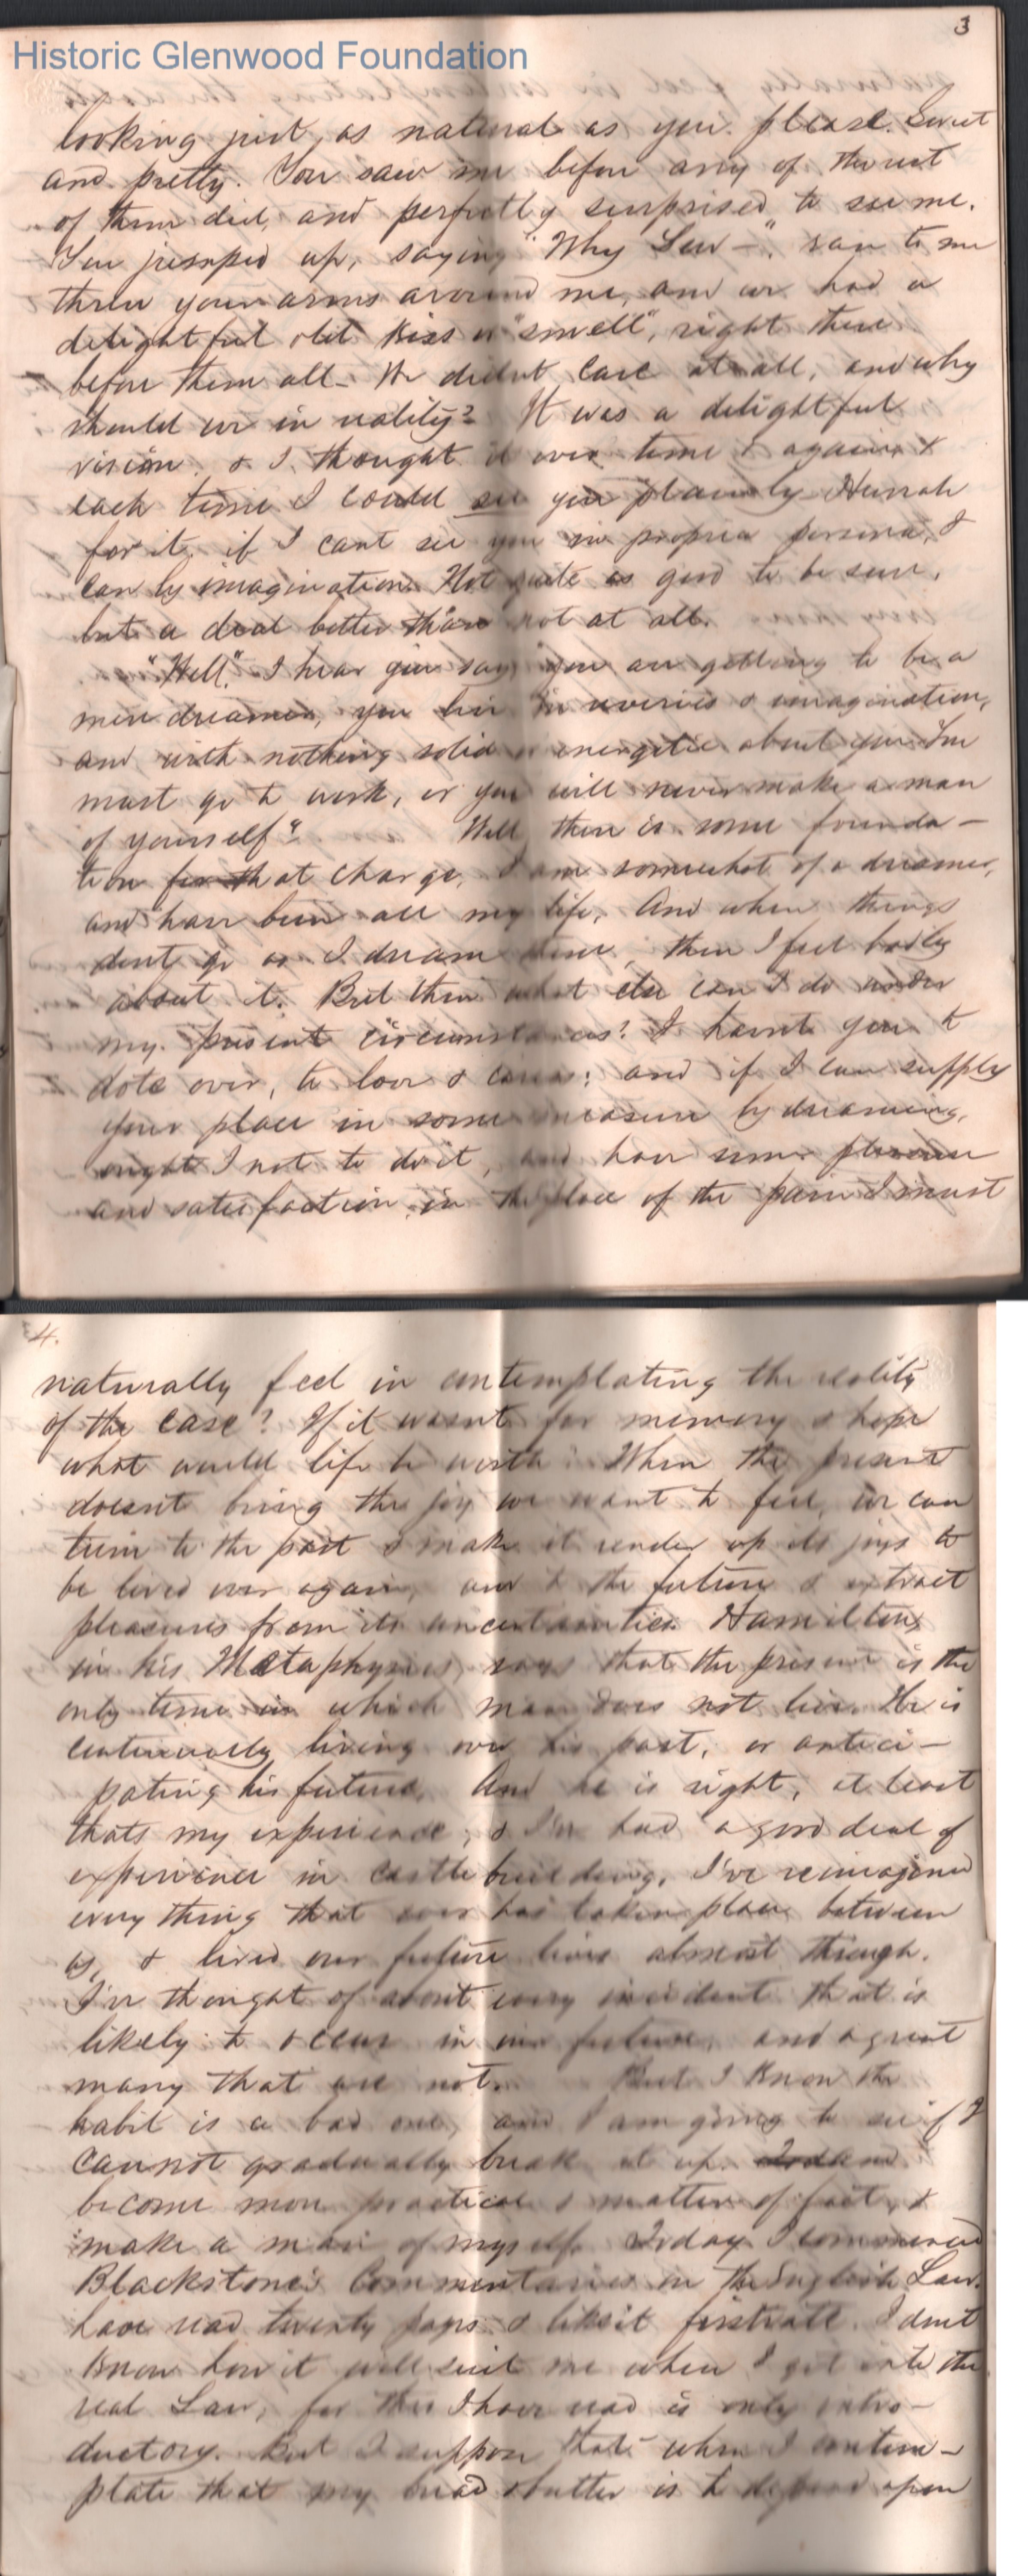 3
Historic Glenwood Foundation
looking just as natural as you please. Sweet
and pretty. You saw me before any of the rest
of them did, and perfectly surprised to see me.
You jumped up, saying "Why Lew—". ran to me
threw your arms around me, and we had a
delightful old kiss "smell", right there
before them all— We didnt care at all, and why
should we in reality? It was a delightful
vision. & I thought it over time & again, &
each time I could see you plainly Hurrah
for it. if I cant see you in propria persona, I
can by imagination. Not quite as good to be sure,
but a deal better than not at all.
"Well". I hear you say you are getting to be a
mere dreamer, you live in reveries & imagination,
and with nothing solid or energetic about you. You
must go to work, or you will never make a man
of yourself" Well, there is some founda—
tion for that charge. I am somewhat of a dreamer,
and have been all my life. And when things
dont go as I dream them, then I feel badly
about it. But then what else can I do under
my present circumstances? I havnt you to
dote over, to love & caress: and if I can supply
your place in some measure by dreaming,
ought I not to do it, and have some pleasure
and satisfaction in the place of the pain I must
4.
naturally feel in contemplating the reality
of the case? If it wasnt for memory & hope
what would life be worth. When the present
doesnt bring the joy we want to feel, we can
turn to the past & make it render up its joys to
be lived over again, and to the future & extract
pleasures from its uncertainties. Hamilton,
in his Metaphysics, says that the present is the
only time in which man does not live. He is
continually living over his past, or antici—
pating his future. And he is right, at least
thats my experience, & I've had a good deal of
experience in castle building. I've reimagined
every thing that ever has taken place between
us, & lived our future lives almost through.
I've thought of about every incident that is
likely to occur in our future, and a great
many that are not. But I know the
habit is a bad one, and I am going to see if I
cannot gradually break it up. and
become more practical & matter of fact, &
make a man of myself. Today I commenced
Blackstone's Commentaries on the English Law.
have read twenty pages & like it firstrate. I dont
know how it will suit me when I get into the
real Law, for this I have read is only intro—
ductory. But I suppose that when I contem—
plate that my bread & butter is to depend upon